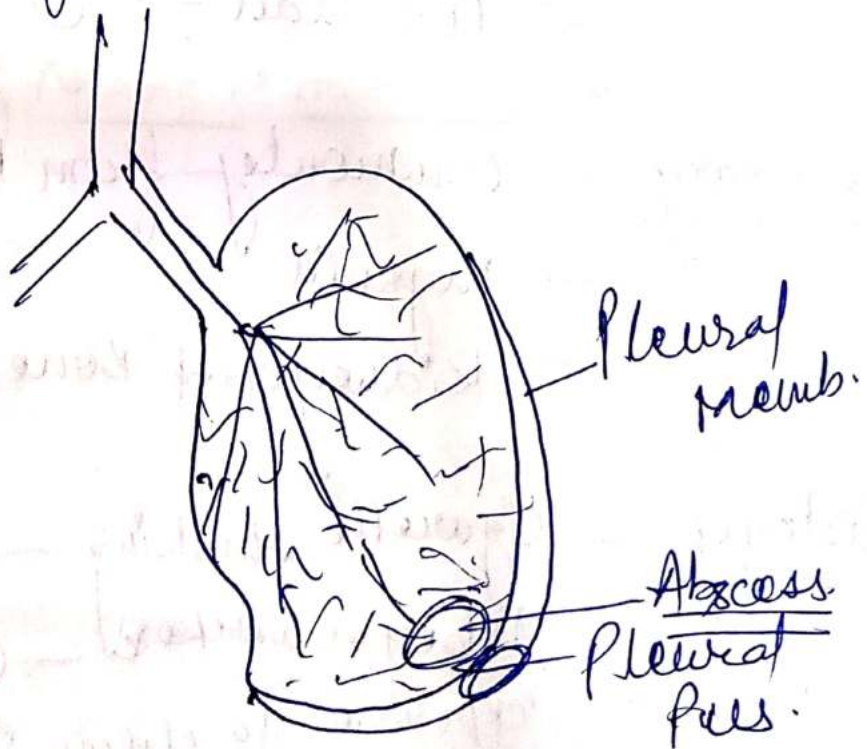 Pleural
Memb.
Abscess.
Pleural
Pus.